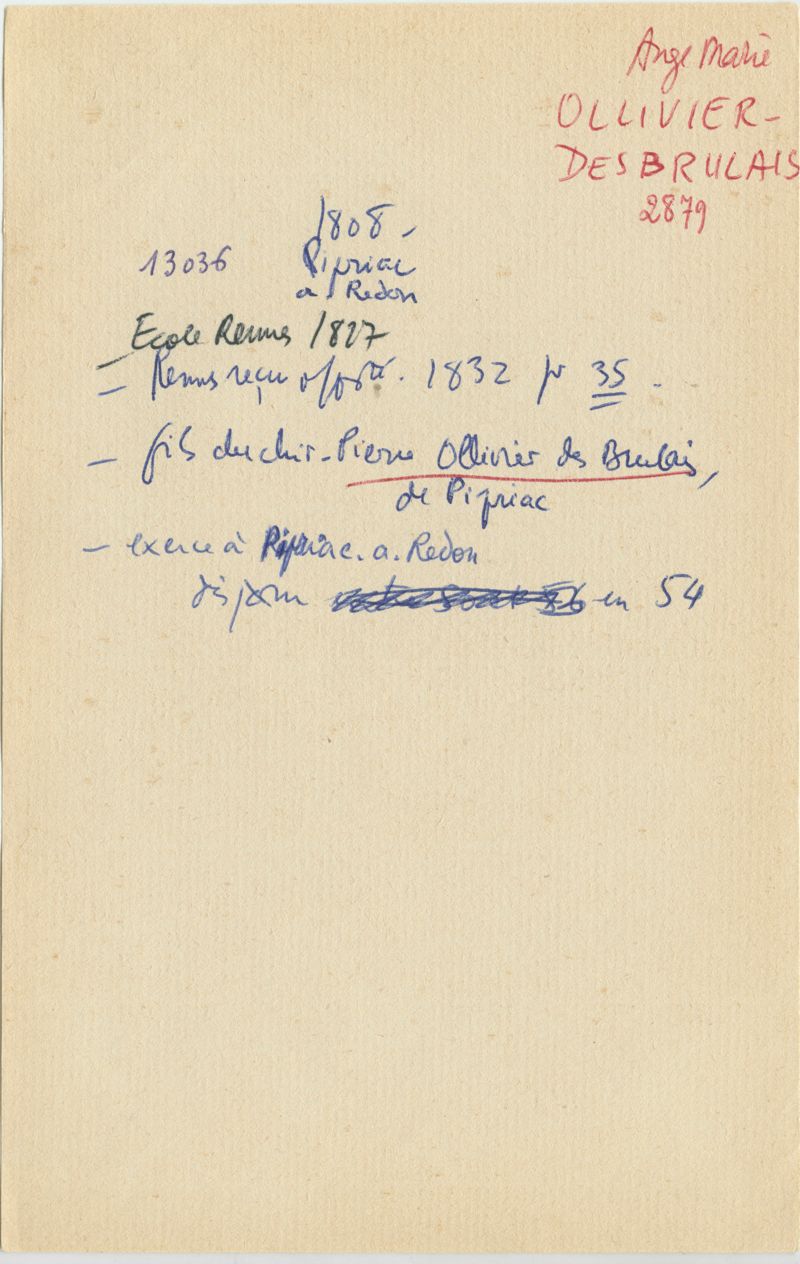 Ange Marie
OLLIVIER-
DESBRULAIS
2879
1808 -
13036 Pipriac
a. Redon
- Ecole Rennes 1827
- Rennes reçu off. 1832 pr 35.
- fils du chir. Pierre Ollivier des Brulais,
de Pipriac
- exerce à Pipriac. a. Redon
disparu en 54